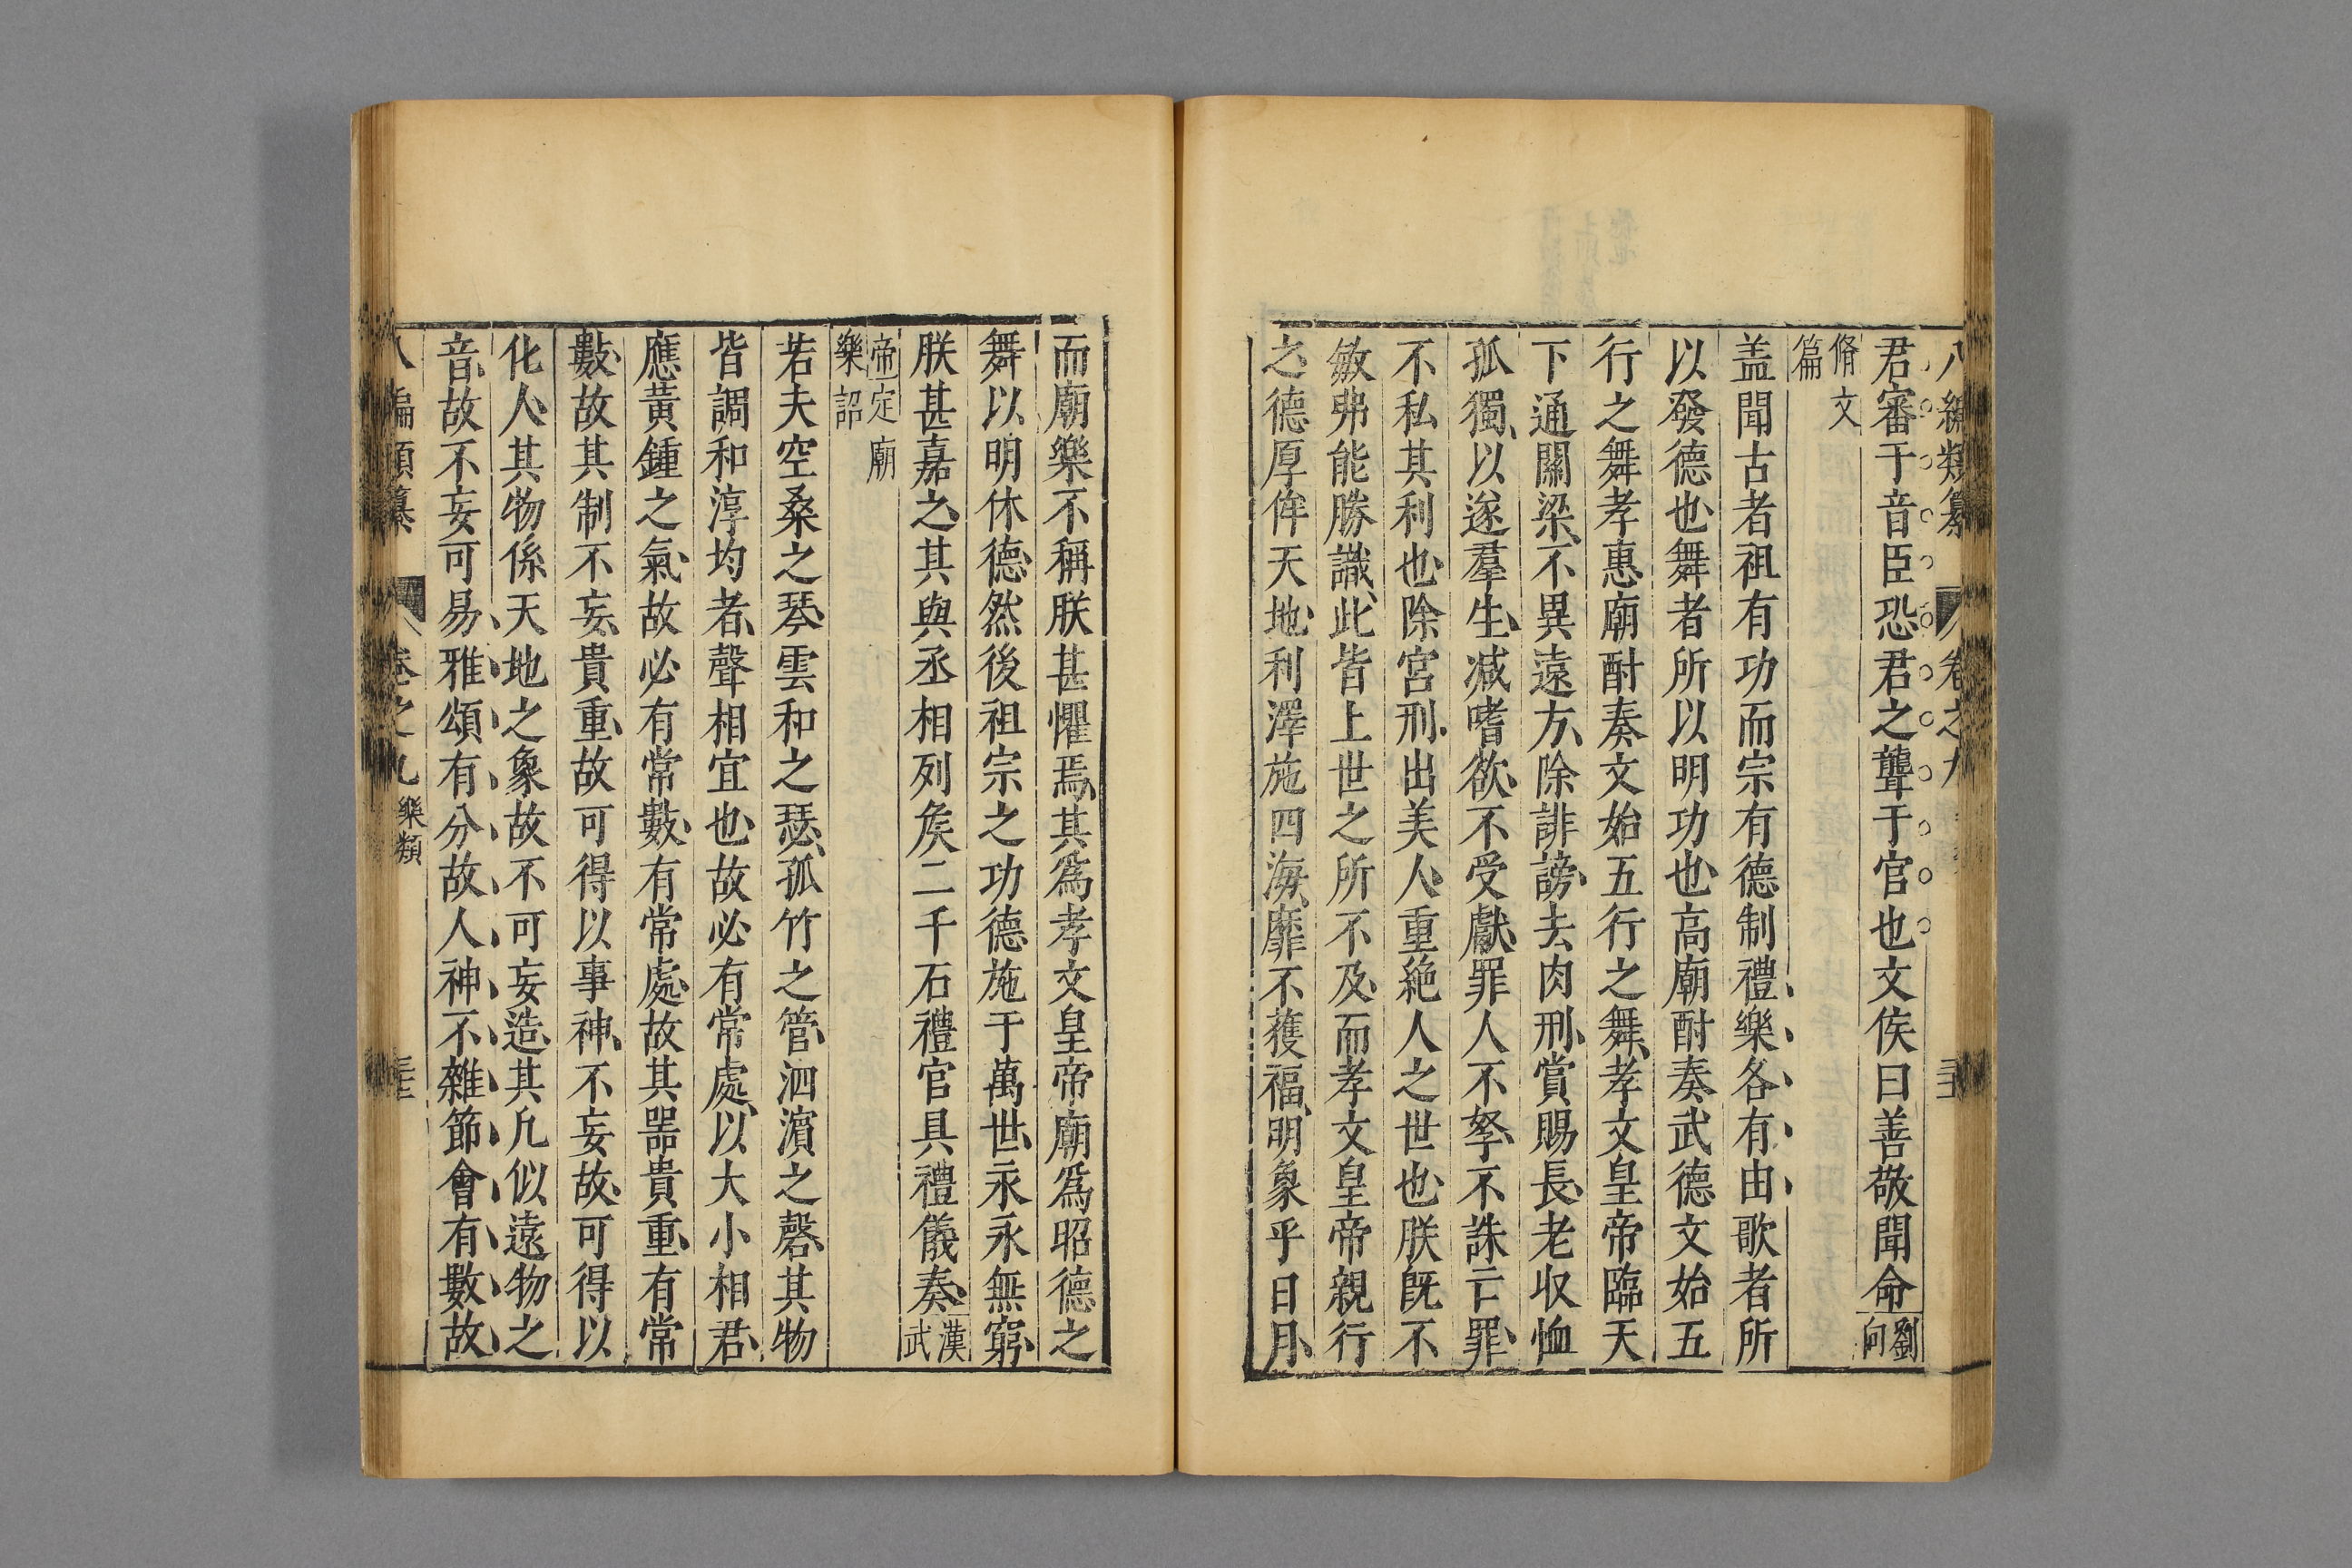 八編類纂 卷之九
君審于音臣恐君之聾于官也文侯曰善敬聞命劉向
脩文篇
盖聞古者祖有功而宗有德制禮樂各有由歌者所
以發德也舞者所以明功也高廟酎奏武德文始五
行之舞孝惠廟酎奏文始五行之舞孝文皇帝臨天
下通關梁不異遠方除誹謗去肉刑賞賜長老收恤
孤獨以遂羣生减嗜欲不受獻罪人不孥不誅亡罪
不私其利也除宮刑出美人重絶人之世也朕旣不
敏弗能勝識此皆上世之所不及而孝文皇帝親行
之德厚侔天地利澤施四海靡不獲福明象乎日月
而廟樂不稱朕甚懼焉其爲孝文皇帝廟爲昭德之
舞以明休德然後祖宗之功德施于萬世永永無窮
朕甚嘉之其與丞相列矦二千石禮官具禮儀奏漢武
帝定廟樂詔
若夫空桑之琴雲和之瑟孤竹之管泗濵之磬其物
皆調和淳均者聲相宜也故必有常處以大小相君
應黃鍾之氣故必有常數有常處故其噐貴重有常
數故其制不妄貴重故可得以事神不妄故可得以
化人其物係天地之象故不可妄造其凡似遠物之
音故不妄可易雅頌有分故人神不雜節會有數故
八編類纂 卷之九 樂類